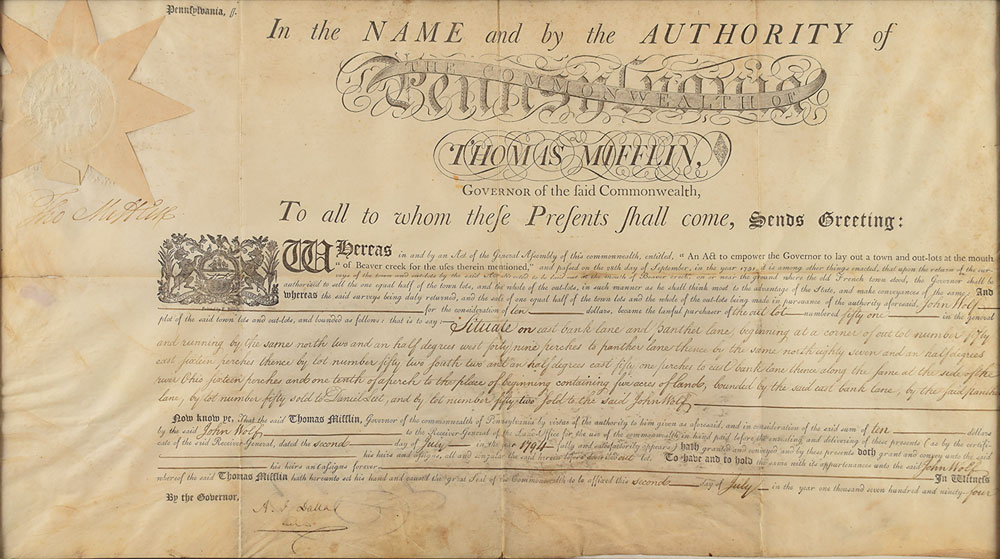 Pennsylvania, ſſ.
In the NAME and by the AUTHORITY of
Pennsylvania
THE COMMONWEALTH OF
THOMAS MIFFLIN,
GOVERNOR of the ſaid Commonwealth,
To all to whom theſe Preſents ſhall come, Sends Greeting:
WHereas in and by an Act of the General Aſſembly of this commonwealth, entitled, "An Act to empower the Governor to lay out a town and out-lots at the mouth
"of Beaver creek for the uſes therein mentioned," and paſſed on the 28th day of September, in the year 1791, it is among other things enacted, that upon the return of the ſur-
veys of the town and out-lots by the ſaid Act directed to be laid out at the mouth of Beaver creek on or near the ground where the old French town ſtood, the Governor ſhall be
authorized to ſell the one equal half of the town lots, and the whole of the out-lots, in ſuch manner as he ſhall think moſt to the advantage of the State, and make conveyance of the ſame. And
whereas the ſaid ſurveys being duly returned, and the ſale of one equal half of the town lots and the whole of the out-lots being made in purſuance of the authority aforeſaid, John Wolf
for the conſideration of ten dollars, became the lawful purchaſer of the out lot numbered fifty one in the general
plot of the ſaid town lots and out-lots, and bounded as follows; that is to ſay: Situate on east bank lane and Panther lane, beginning at a corner of out lot number fifty
and running by the same north two and an half degrees west forty nine perches to panther lane thence by the same north eighty seven and an half degrees
east sixteen perches thence by lot number fifty two south two and an half degrees east fifty one perches to east bank lane thence along the same at the side of the
river Ohio sixteen perches and one tenth of a perch to the place of beginning containing five acres of land, bounded by the said east bank lane, by the said Panther
lane, by lot number fifty sold to Daniel and by lot number fifty two sold to the said John Wolf
Now know ye, That the ſaid Thomas Mifflin, Governor of the commonwealth of Pennſylvania by virtue of the authority to him given as aforeſaid, and in conſideration of the ſaid ſum of ten dollars
by the ſaid John Wolf to the Receiver-General of the Land-Office for the uſe of the commonwealth in hand paid before the enſealing and delivering of theſe preſents (as by the certifi-
cate of the ſaid Receiver-General, dated the second day of July in the year 1794 fully and ſatisfactorily appears) hath granted and conveyed, and by theſe preſents doth grant and convey unto the ſaid
his heirs and aſſigns, all and ſingular the ſaid herein before deſcribed out lot. To have and to hold the ſame with its appurtenances unto the ſaid John Wolf
his heirs and aſſigns forever In Witneſs
whereof the ſaid Thomas Mifflin hath hereunto ſet his hand and cauſed the great Seal of the Commonwealth to be affixed this second day of July in the year one thouſand ſeven hundred and ninety four
By the Governor,
Tho Mifflin
A. J. Dallas